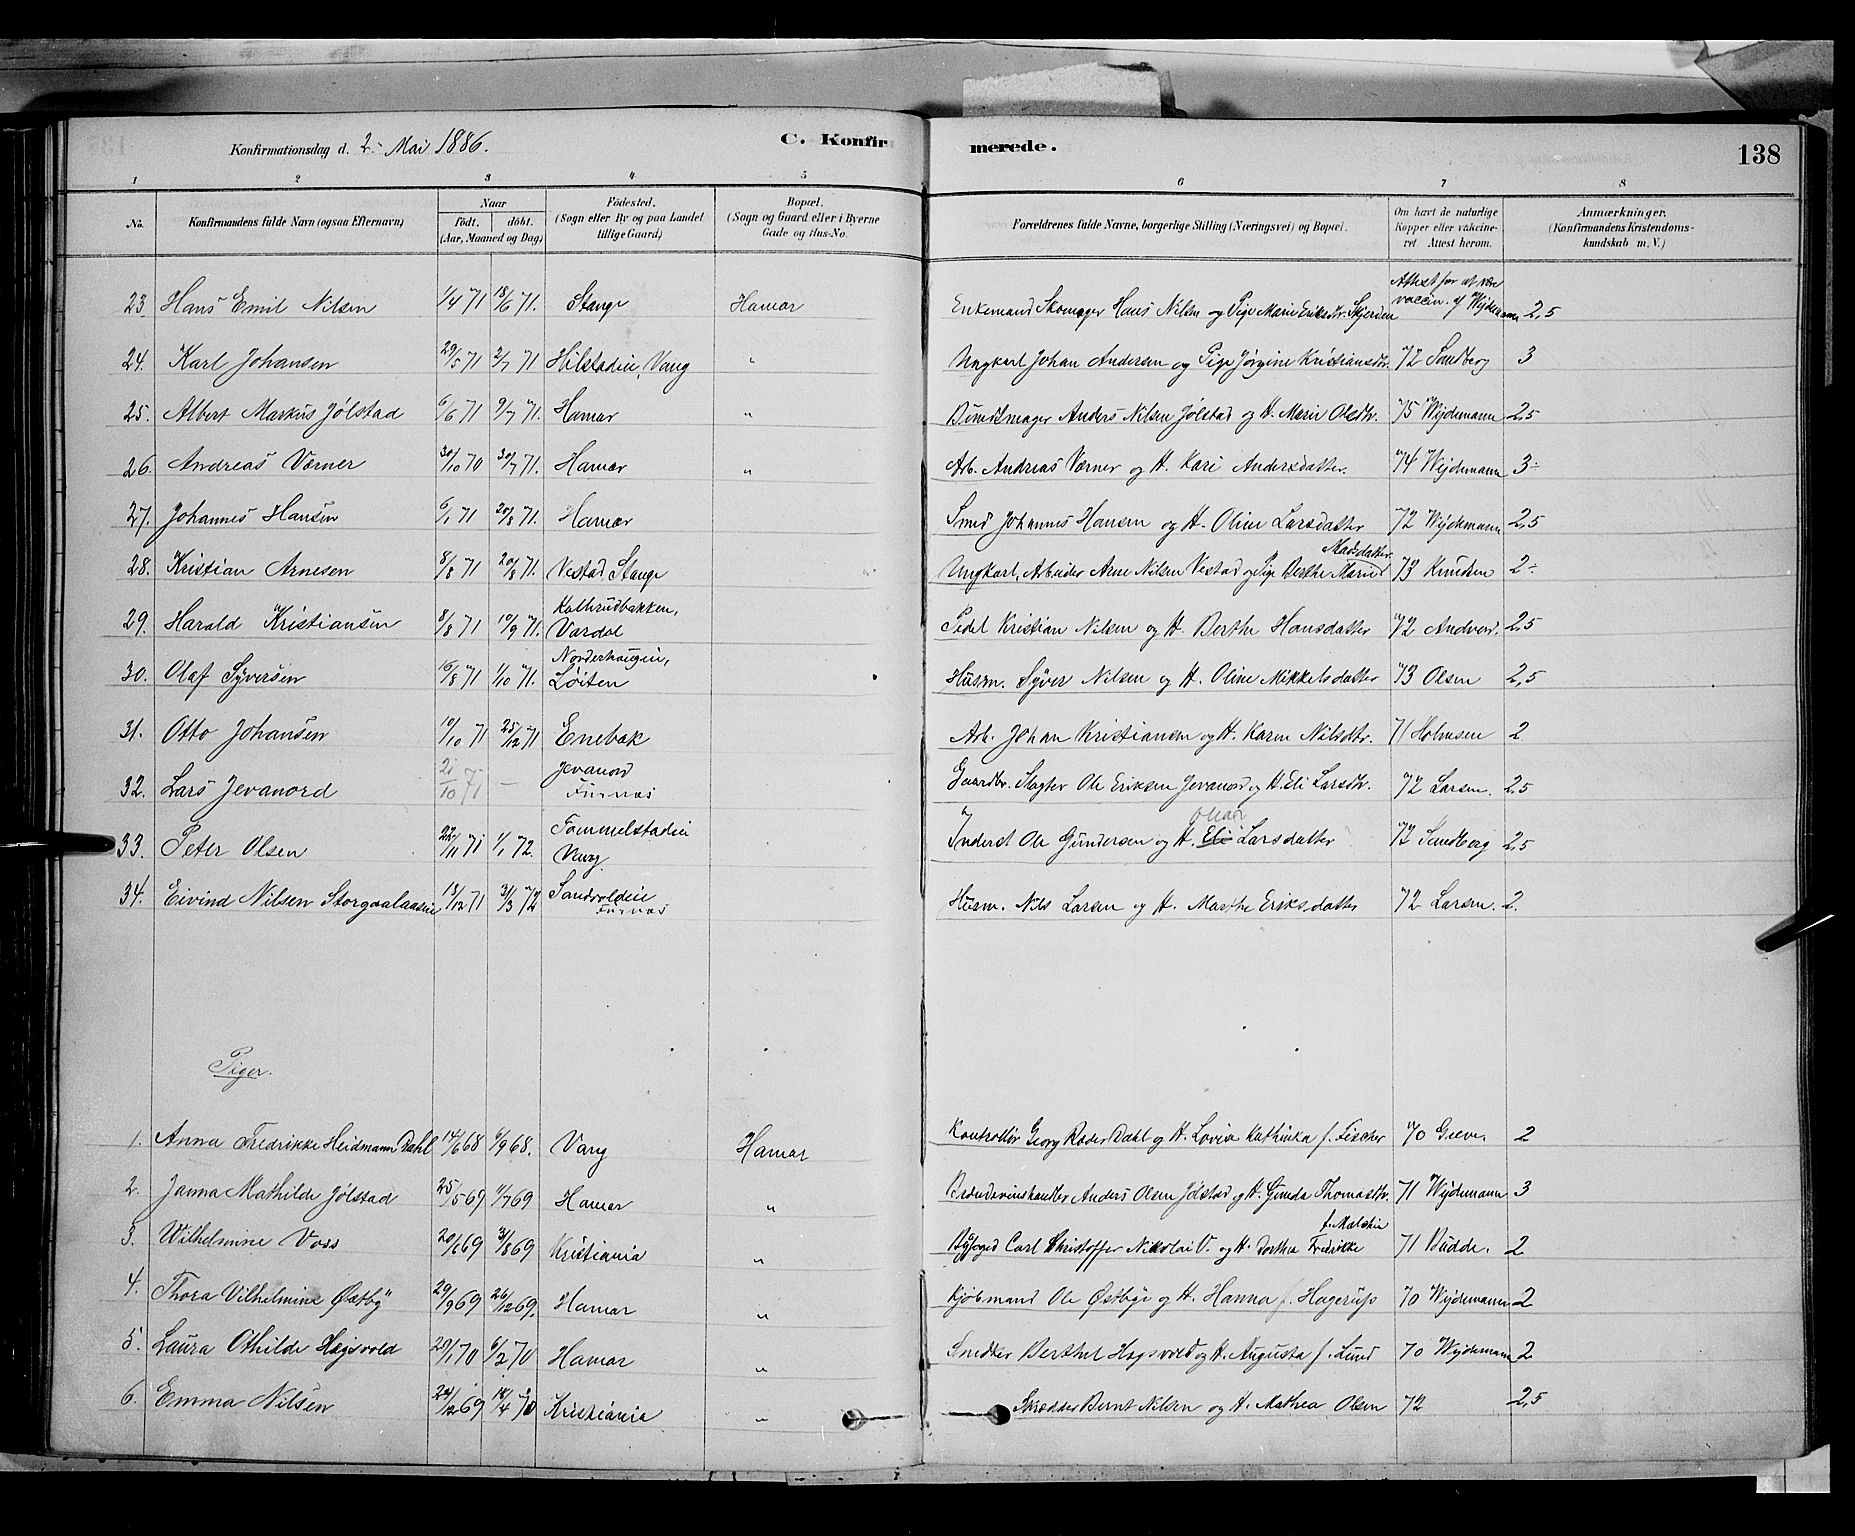 Konfirmationsdag d. 2. Mai 1886. C. Konfirmerede. 138
1 2 3 4 5 6 7 8
No. Konfirmandens fulde Navn (ogsaa Efternavn) Naar födt. döbt. (Aar, Maaned og Dag) Födested. (Sogn eller By og paa Landet tillige Gaard) Bopæl. (Sogn og Gaard eller i Byerne Gade og Hus-No. Forældrenes fulde Navne, borgerlige Stilling (Næringsvei) og Bopæl. Om havt de naturlige Kopper eller vakcineret Attest herom. Anmærkninger. (Konfirmandens Kristendomskundskab m. V.)
23. Hans Emil Nilsen 1/4 71 18/6 71. Stange Hamar Enkemand Skomager Hans Nilsen og Pige Marie Eriksdtr. Skjerden Attest for at være vaccin. af Wydemann 2,5
24. Karl Johansen 29/5 71 2/7 71 Hilstadeie, Vang " Ungkarl Johan Andersen og Pige Jørgine Kristiansdtr. 72 Sandberg 3
25. Albert Markus Jølstad 6/6 71 9/7 71. Hamar " Bundtmager Anders Nilsen Jølstad og H. Marie Olsdtr. 75 Wydemann 2,5
26. Andreas Værner 30/10 70 30/7 71. Hamar " Arb. Andreas Værner og H. Kari Andersdatter. 74 Wydemann 3-
27. Johannes Hansen 6/1 71 20/8 71. Hamar Smed Johannes Hansen og H. Oline Larsdatter 72 Wydemann 2,5
28. Kristian Arnesen 8/8 71 20/8 71. Vestad Stange Ungkarl, Arbeider Arne Nilsen Vestad og Pige Berthe Marie Madsdatter 73 Knudsen 2-
29. Harald Kristiansen 8/8 71 10/9 71. Kalhrudbakken, Vardal Pedel Kristian Nilsen og H. Berthe Hansdatter 72 Andvord. 2,5
30. Olaf Syversen 16/8 71 1/10 71. Norderhaugeie, Løiten Husm. Syver Nilsen og H. Oline Mikkelsdatter 73 Olsen 2,5
31. Otto Johansen 10/10 71 25/12 71 Enebak Arb. Johan Kristiansen og H. Karen Nilsdtr. 71 Holmsen 2
32. Lars Jevanord 21/10 71 — Jevanord Furnæs Gaardbr. Slagter Ole Eriksen Jevanord og H. Eli Larsdtr. 72 Larsen. 2,5
33. Peter Olsen 22/11 71 1/1 72. Tommelstadeie Vang Inderst Ole Gundersen og H. Eli Larsdatter 72 Sandberg 2,5
34. Eivind Nilsen Storgaalaaseie 13/12 71 31/3 72 Sandvoldeie Furnæs Husm. Nils Larsen og H. Marthe Eriksdatter 72 Larsen. 2.
Piger.
1. Anna Fredrikke Heidmann Dahl 14/6 68 6/9 68. Vang Hamar Kontrollør Georg Roder Dahl og H. Lovise Kathinka f. Fischer 70 Greve. 2
2. Janna Mathilde Jølstad 25/5 69 11/7 69 Hamar " Brændevinshandler Anders Olsen Jølstad og H. Gunda Thomasdtr. 71 Wydemann 3
3. Wilhelmine Voss 20/6 69 31/8 69 Kristiania " Byfoged Carl Christoffer Nikolai V. og H. Dorthea Fredrikke 71 Budde. 2
4. Thora Vilhelmine Østby 29/9 69 26/12 69. Hamar " Kjøbmand Ole Østbye og H. Hanna f. Hagerup 70 Wydemann 2
5. Laura Othilde Hagsvold 20/1 70 6/2 70 Hamar " Snedker Berthel Hagsvold og H. Augusta f. Lund 70 Wydemann 2
6. Emma Nilsen 24/12 69 18/4 70 Kristiania " Skrædder Bernt Nilsen og H. Mathea Olsen 72 2,5